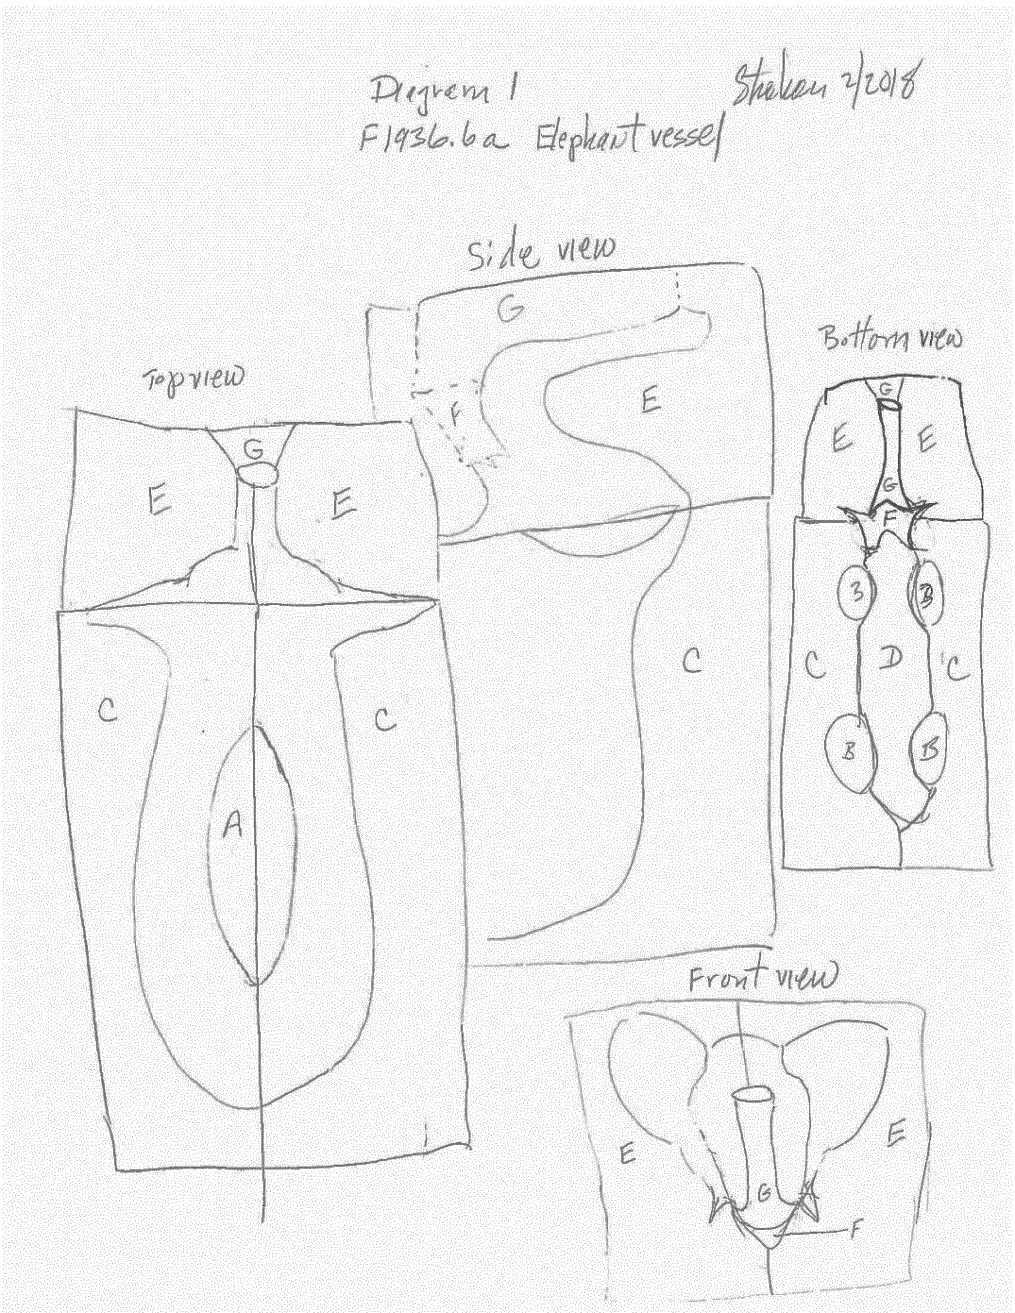 Diagram 1
2/2018
F1936.6a Elephant vessel
Side view
G
F
E
C
Top view
G
E E
C C
A
Bottom view
G
E E
G
F
B B
C D C
B B
Front view
E E
G
F